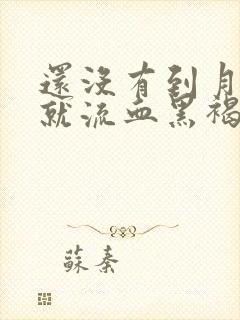 還沒有到月
就流血黑褐
蘇秦